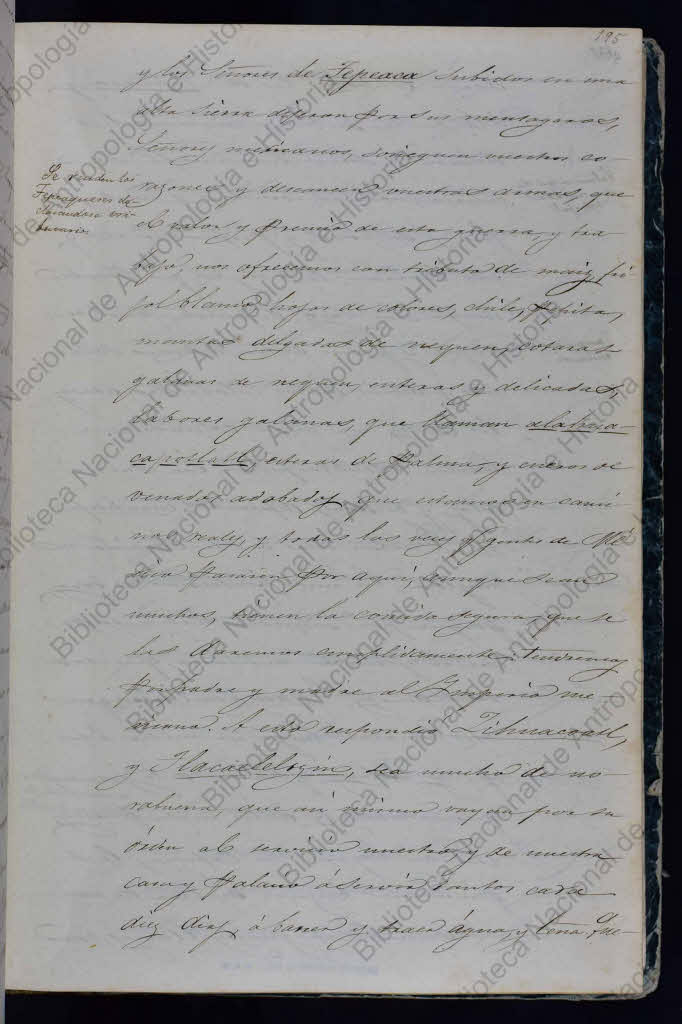 195
y los Señores de Tepeaca subidos en una
alta sierra dijeron por sus mensageros,
Señores mexicanos, sosieguen vuestros co-
razones y descansen vuestras armas, que
el valor y premio de esta guerra, y tra-
bajo, nos ofrecemos con tributo de maiz, fri-
jol blanco, hojas de colores, chile, pepita,
mantas delgadas de nequen, cotaras
galanas de nequen, enteras y delicadas,
labores galanas, que llaman
esteras de Palma, y cueros de
venados adobados que estamos en cami-
nos reales, y todas las veces y gentes de Mé-
xico pasaren por aquí, aunque sean
muchos, tienen la comida segura, que se
las daremos cumplidamente: tendremos
por padre y madre al Imperio me-
xicano. A esto respondio Zihuacoatl,
y Tlacaeleltzin, sea mucho de no-
rabuena, que así mismo vayan por su
órden al servicio nuestro, y de nuestra
casa y Palacio á servir tantos cada
diez dias, á barrer y traer água, y lena que-
Se rinden los
Tepeaqueños de-
clarandose tri-
butarios.
Biblioteca Nacional de Antropología e Historia